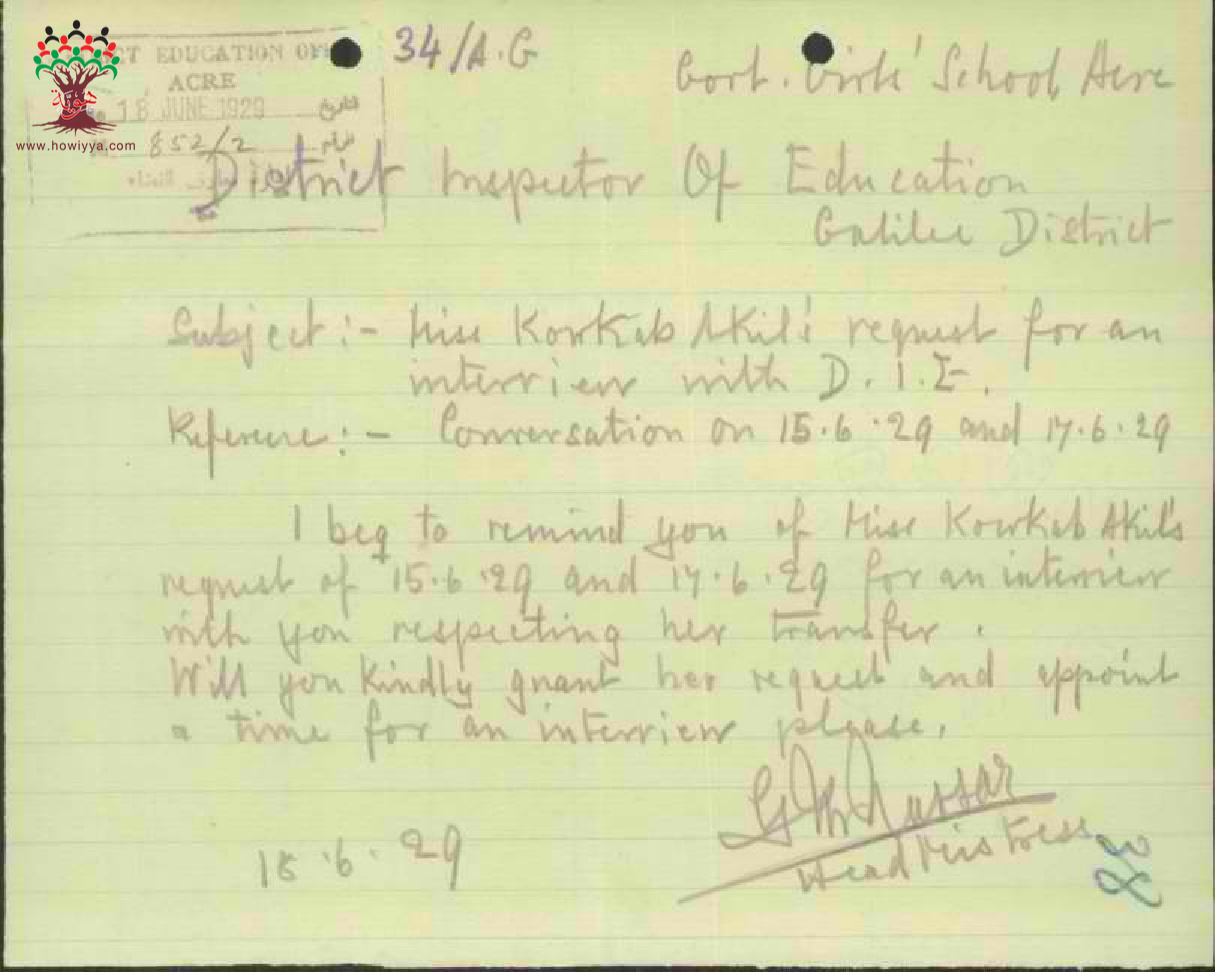 34/A.G
Govt. Girls' School Acre
EDUCATION OFF
ACRE
18 JUNE 1929 تاريخ
852/2
www.howiyya.com
District Inspector Of Education
Galilee District
Subject :- Miss Kowkab Akil's request for an
interview with D.I.E.
Reference :- Conversation on 15.6.29 and 17.6.29
I beg to remind you of Miss Kowkab Akil's
request of 15.6.29 and 17.6.29 for an interview
with you respecting her transfer.
Will you kindly grant her request and appoint
a time for an interview please.
Nassar
Head Mistress
18.6.29